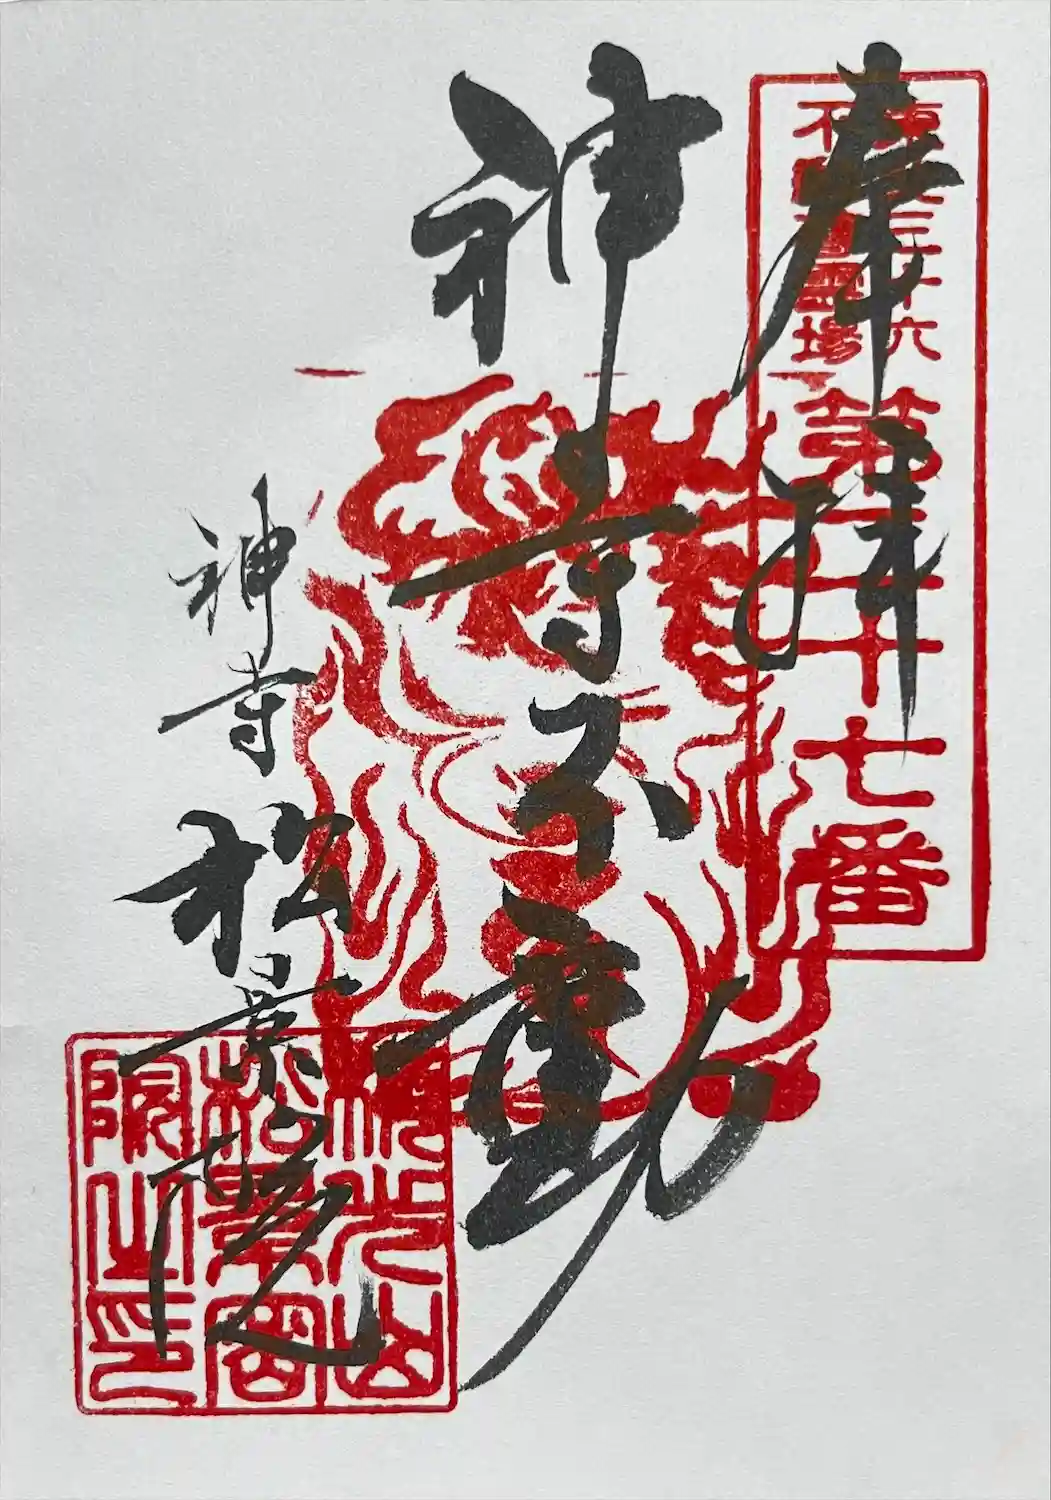 奉拝
東北三十六
不動尊霊場
第二十七番
神寺不動
神寺 松景院
光山
松景
院之印